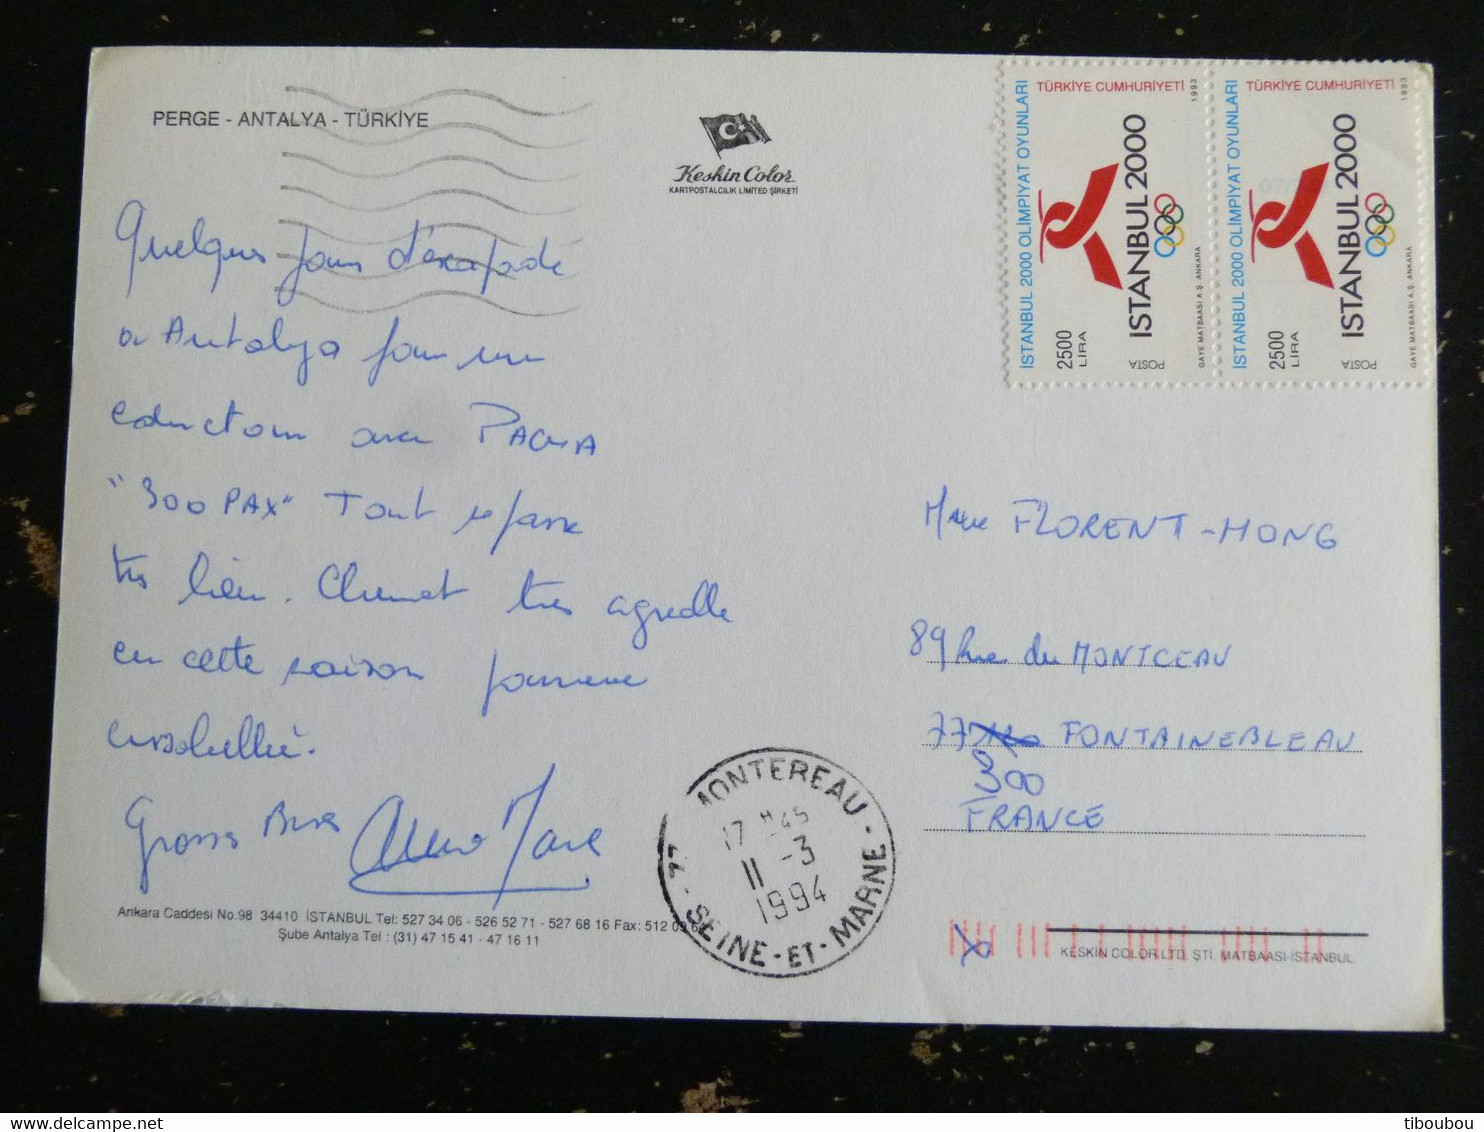 PERGE - ANTALYA - TÜRKİYE
Keskin Color
KARTPOSTALCILIK LIMITED ŞİRKETİ
Quelques jours d'escapade
à Antalya pour un
eductour avec PACHA
"300 PAX" Tout se passe
très bien. Climat très agréable
en cette saison journée
ensoleillée.
Grosses Bises
Ankara Caddesi No.98 34410 İSTANBUL Tel: 527 34 06 - 526 52 71 - 527 68 16 Fax: 512 09 6
Şube Antalya Tel : (31) 47 15 41 - 47 16 11
İSTANBUL 2000 OLİMPİYAT OYUNLARI
TÜRKİYE CUMHURİYETİ
1993
İSTANBUL 2000
2500
LİRA
POSTA
GAYE MATBAASI A.Ş. ANKARA
İSTANBUL 2000 OLİMPİYAT OYUNLARI
TÜRKİYE CUMHURİYETİ
1993
İSTANBUL 2000
2500
LİRA
POSTA
GAYE MATBAASI A.Ş. ANKARA
Mme FLORENT-HONG
89 Rue du MONTCEAU
77 FONTAINEBLEAU
300
FRANCE
MONTEREAU
17 H45
11 -3
1994
77 - SEINE-ET-MARNE
KESKIN COLOR LTD. ŞTİ. MATBAASI-İSTANBUL
tiboubou